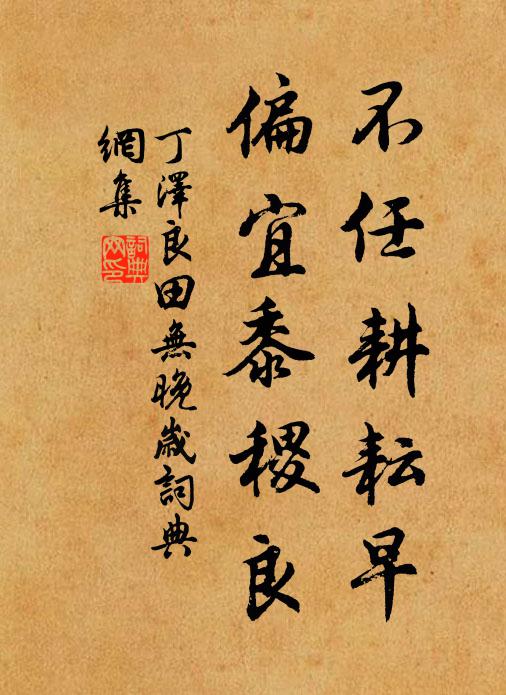 不任耕耘早
偏宜黍稷良
丁澤良田無晚歲詞典
網集
詞典
网印